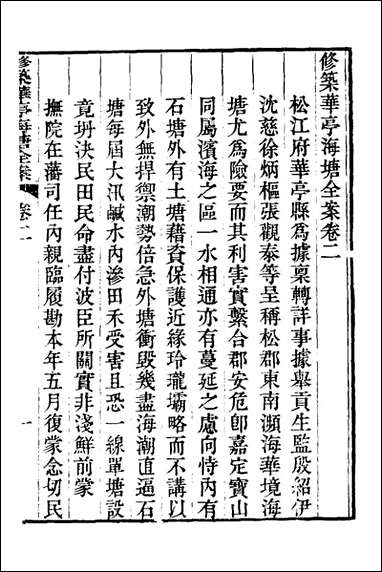 修築華亭海塘全案卷二
松江府華亭縣爲據稟轉詳事據舉貢生監殷紹伊
沈慈徐炳樞張觀泰等呈稱松郡東南瀕海華境海
塘尤爲險要而其利害實繫合郡安危卽嘉定寶山
同屬濱海之區一水相通亦有蔓延之慮向恃內有
石塘外有土塘藉資保護近緣玲瓏壩略而不講以
致外無捍禦潮勢倍急外塘衝毀幾盡海潮直逼石
塘每屆大汛鹹水內滲田禾受害且恐一線單塘設
竟坍決民田民命盡付波臣所關實非淺鮮前蒙
撫院在藩司任內親臨履勘本年五月復蒙念切民
修築華亭海塘全案
卷二
一